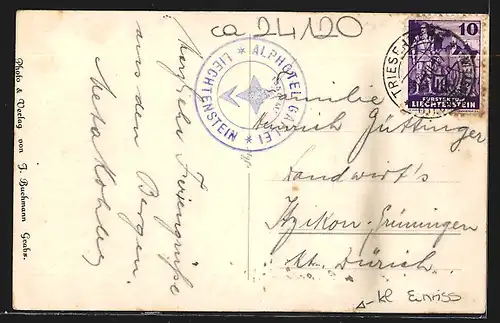 ca 24120
Herzliche Feriengrüsse
aus den Bergen
Meta
Photo & Verlag von J. Buchmann Grabs.
ALPHOTEL GAFLEI
LIECHTENSTEIN
TRIESEN
10
FÜRSTENTUM
LIECHTENSTEIN
Familie
Heinrich Güttinger
Landwirt's
Itzikon-Grüningen
Kt. Zürich
kl Einriss